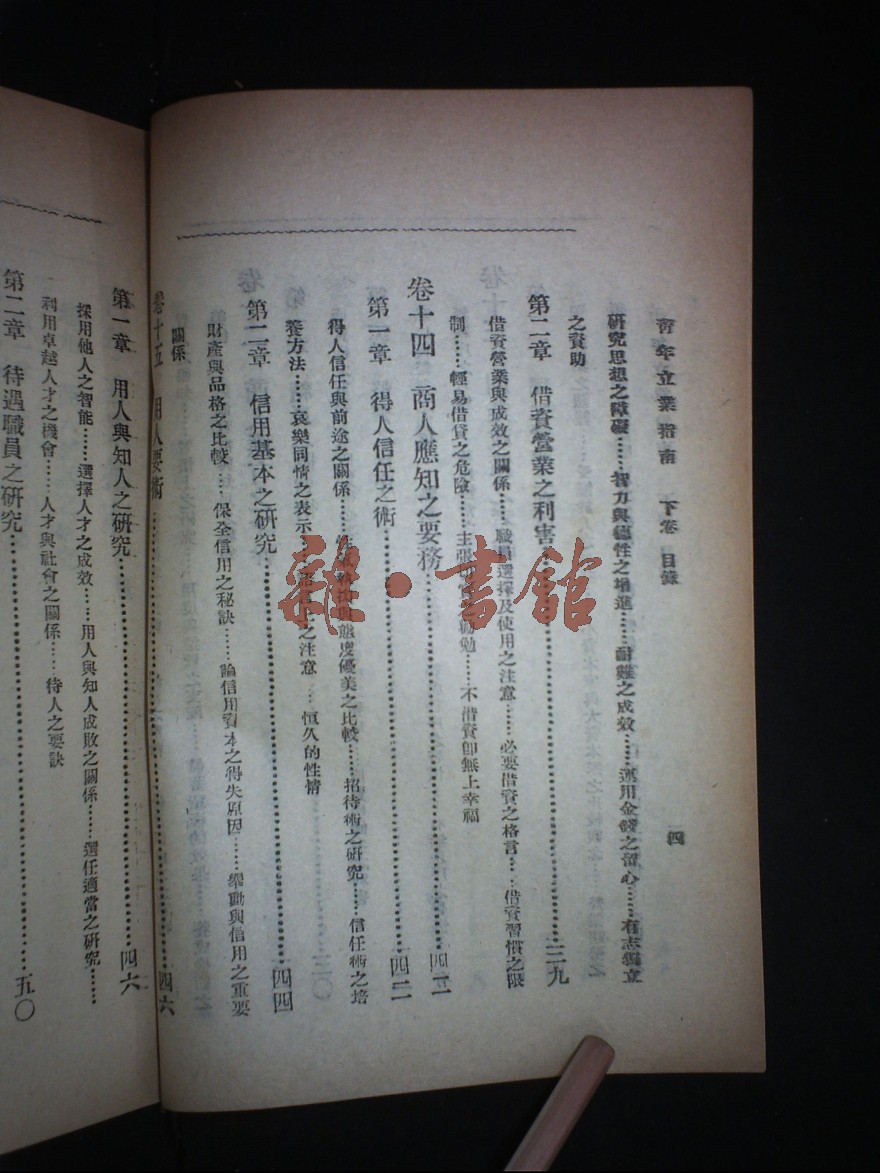 青年立業指南　下卷　目錄
四
研究思想之障礙……智力與德性之增進……耐難之成效……運用金錢之留心……有志獨立
之資助
第二章　借資營業之利害……三九
借資營業與成效之關係……職員選擇及使用之注意……必要借資之格言……借資習慣之限
制……輕易借貸之危險……主張……勉……不借資卽無上幸福
卷十四　商人應知之要務……四二
第一章　得人信任之術……四二
得人信任與前途之關係……態度優美之比較……招待術之研究……信任術之培
養方法……哀樂同情之表示……之注意……恒久的性情
第二章　信用基本之研究……四四
財產與品格之比較……保全信用之秘訣……論信用資本之得失原因……舉動與信用之重要
關係
卷十五　用人要術……四六
第一章　用人與知人之研究……四六
採用他人之智能……選擇人才之成效……用人與知人成敗之關係……選任適當之研究……
利用卓越人才之機會……人才與社會之關係……待人之要訣
第二章　待遇職員之研究……五〇
雜·書館